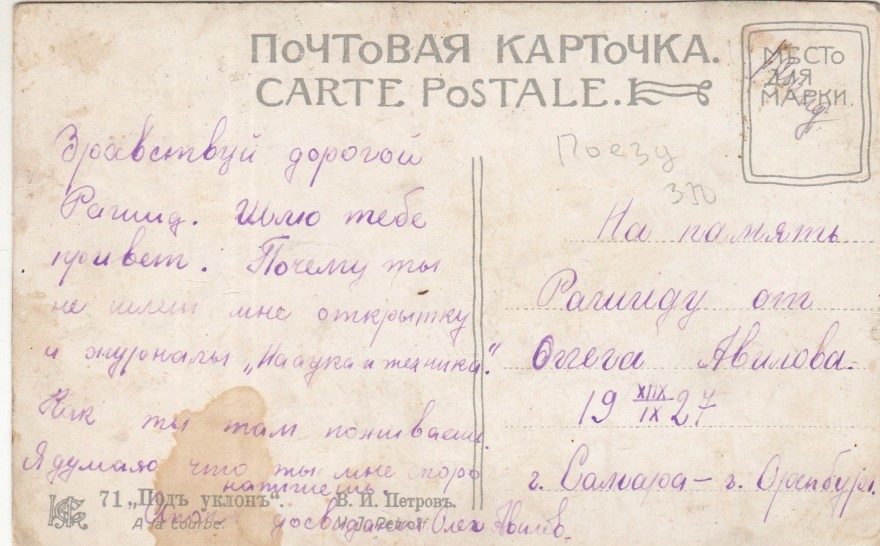 ПОЧТОВАЯ КАРТОЧКА.
CARTE POSTALE.
МЕСТО
ДЛЯ
МАРКИ.
Здравствуй дорогой
Рашид. Шлю тебе
привет. Почему ты
не шлеш мне открытку
и журналы „Наука и техника“.
Как ты там поживаеш.
Я думаю что ты мне скоро
напишешь.
71 „Подъ уклонъ“ В. И. Петровъ.
A la courbe.
досвидания Олег Авилов.
Поезу
На память
Рашиду от
Олега Авилова.
19 XIIX/IX 27
г. Самара – г. Оренбург.